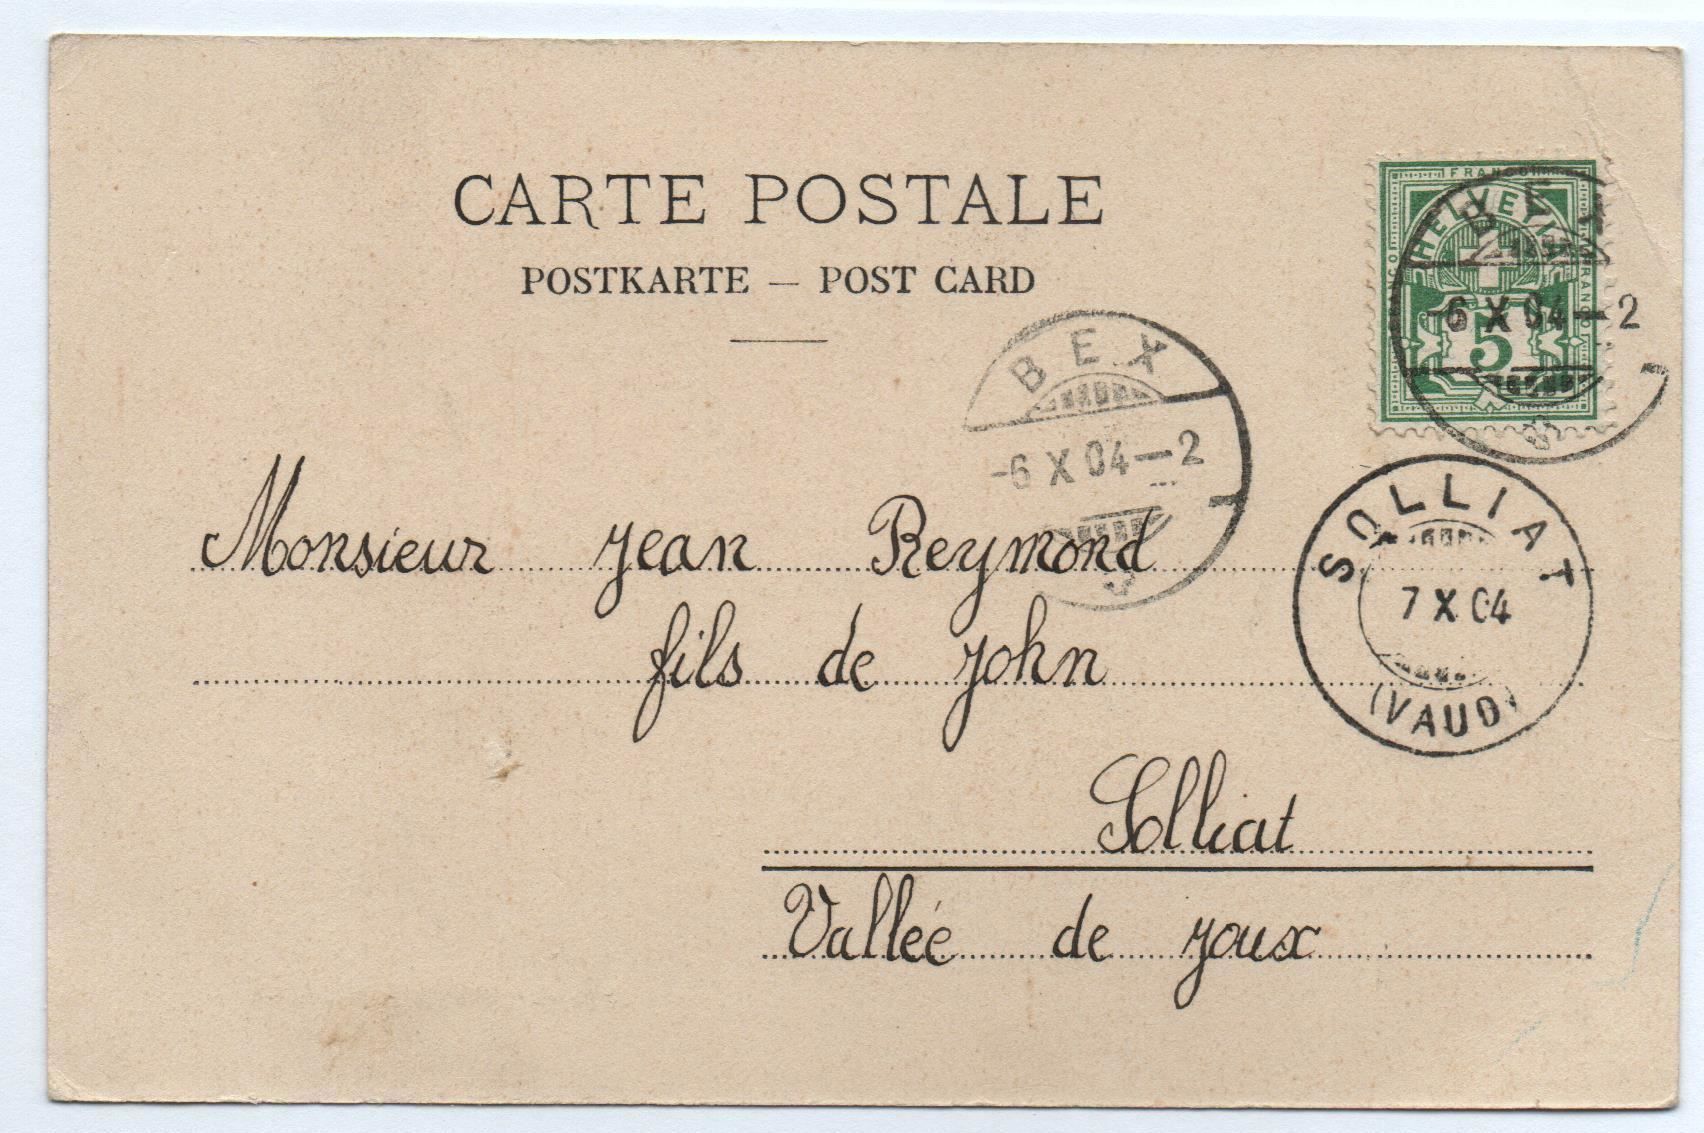 CARTE POSTALE
POSTKARTE — POST CARD
FRANCO
HELVETIA
FRANCO
5
BEX
-6 X 04—2
BEX
-6 X 04—2
SOLLIAT
7 X 04
(VAUD)
Monsieur Jean Reymond
fils de John
Solliat
Vallée de Joux